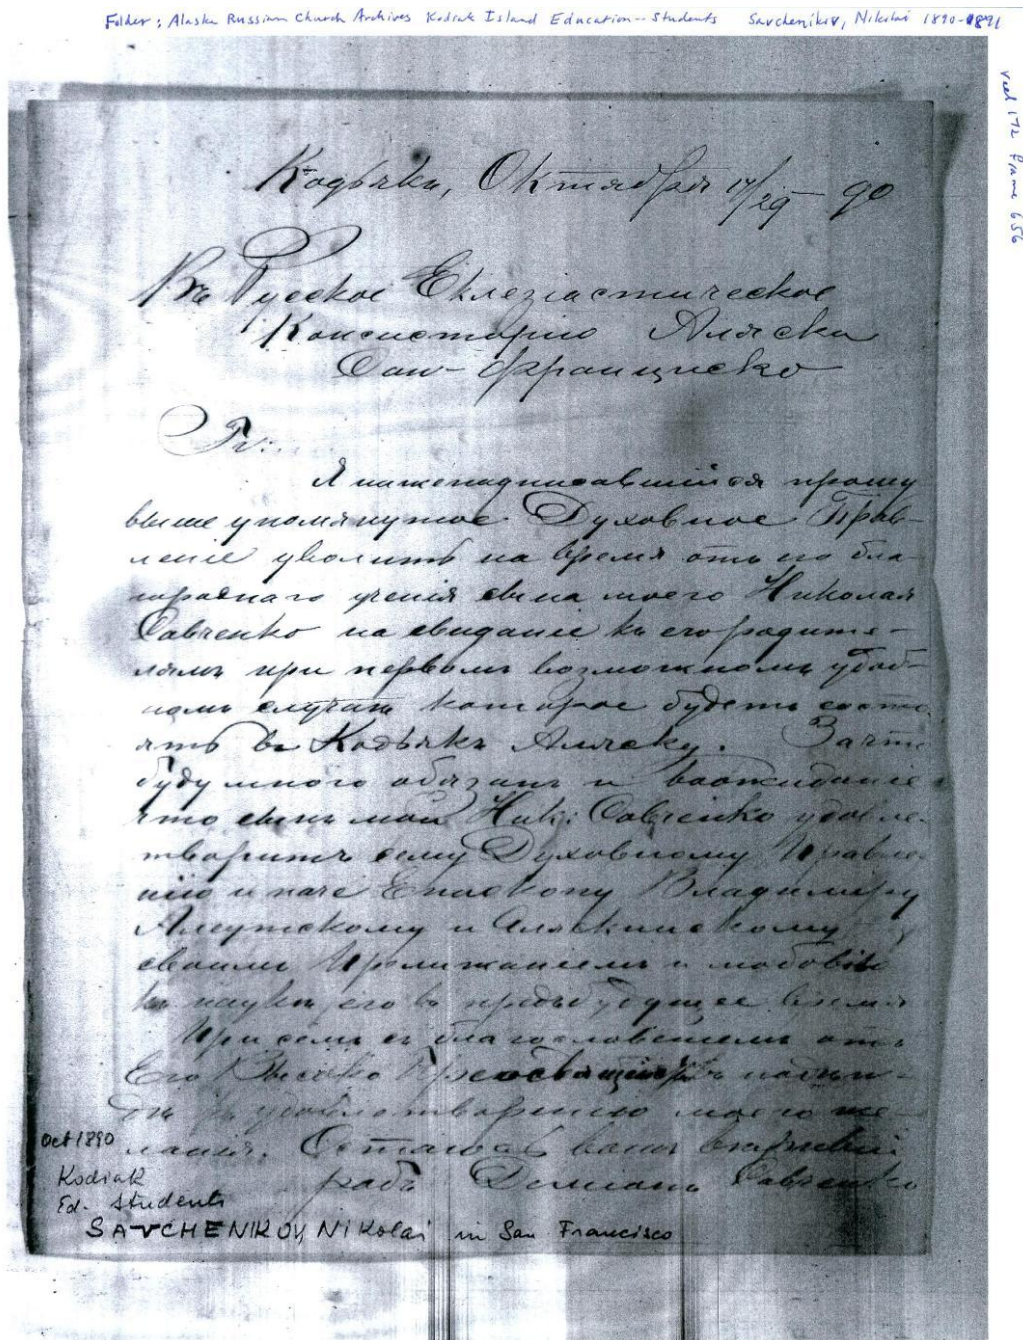 Folder: Alaska Russian Church Archives Kodiak Island Education -- Students Savchenikov, Nikolai 1890-1891
reel 172 frame 656
Кодьякъ, Октября 17/29 - 90
Въ Русское Еклезіастическое
Консисторію Аляски
Сан-Франциско
Я нижеподписавшійся прошу
выше упомянутое Духовное Прав-
леніе уволить на время отъ его бла-
городнаго ученія сына моего Николая
Савченко на свиданіе къ его родите-
лямъ при первомъ возможномъ удоб-
номъ случаѣ которое будетъ состо
ять въ Кодьякъ Аляску. За что
буду много обязанъ и въ ожиданіе
что сынъ мой Ник: Савченко удовле-
творитъ сему Духовному Правле-
нію и паче Епископу Владиміру
Алеутскому и Аляскинскому
своимъ прилижаніемъ и любовью
къ науки его въ предъбудущее время
При семъ съ благословеніемъ отъ
Его Высоко
удовлетворенію моего же-
ланія. Остаюсь вашъ
рабъ Деміанъ Савченко
Oct 1890
Kodiak
Ed. Students
SAVCHENIKOV, Nikolai in San Francisco